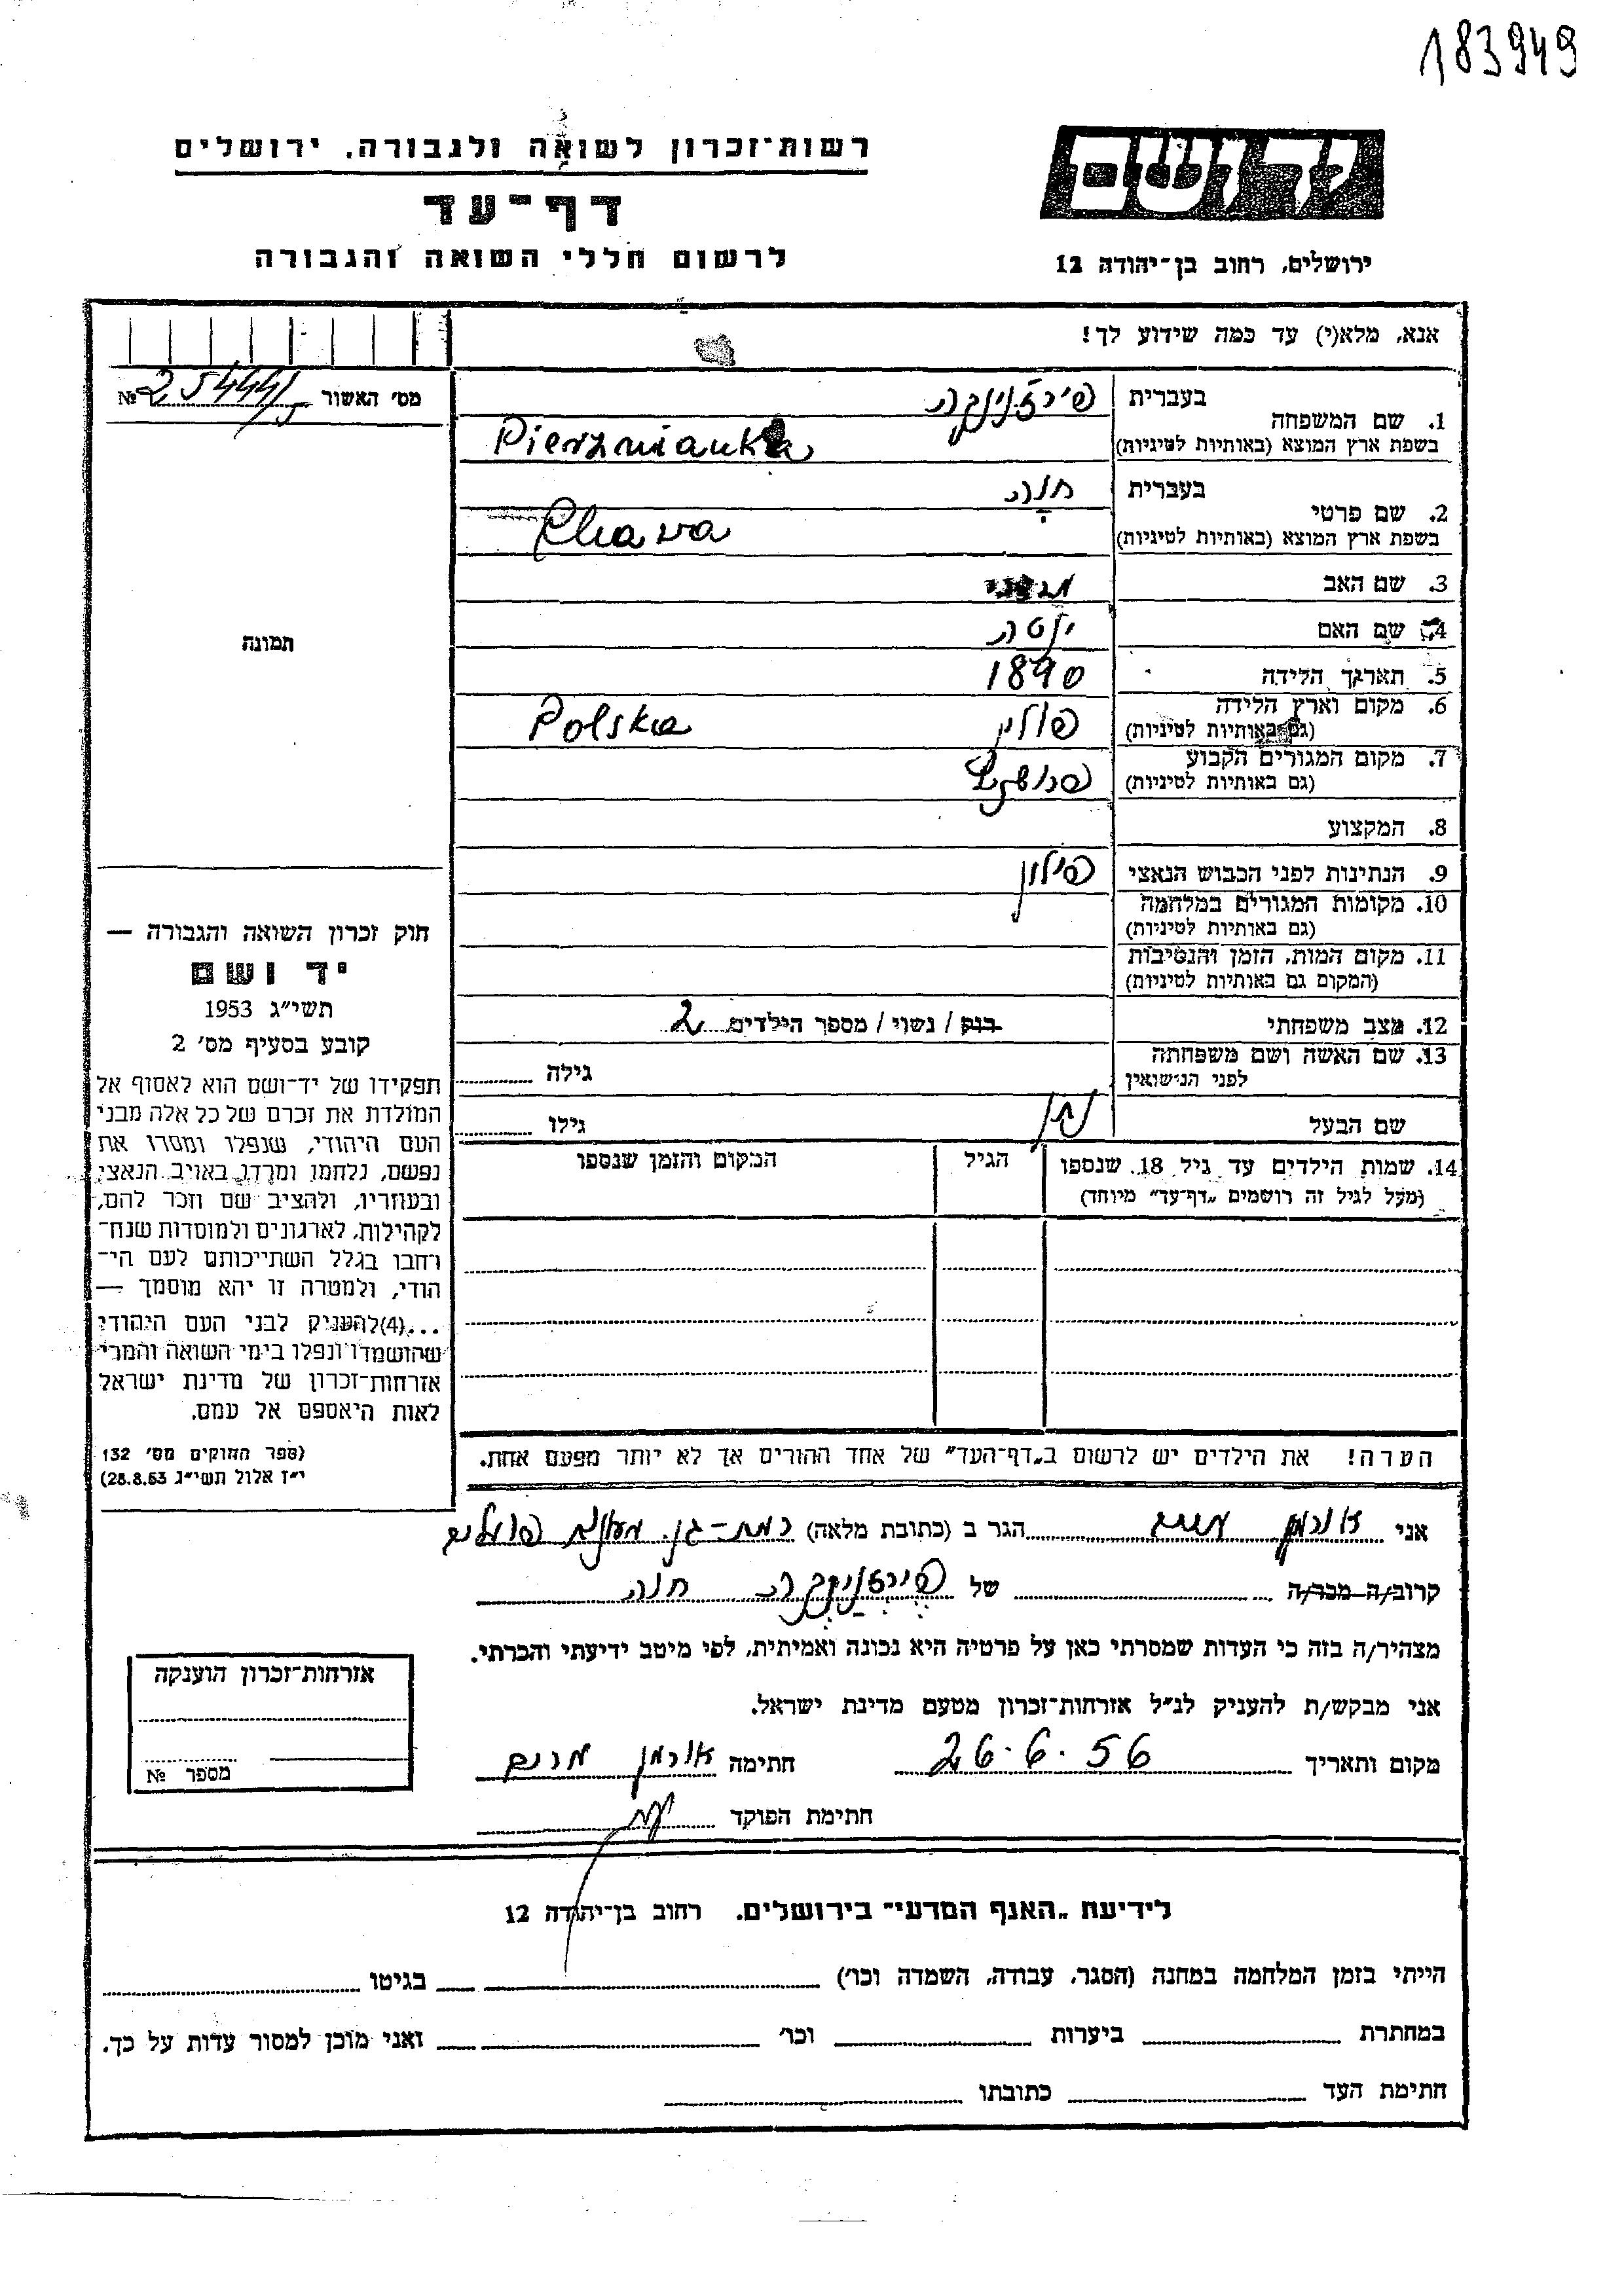 183949
רשות־זכרון לשואה ולגבורה, ירושלים
דף־עד
לרשום חללי השואה והגבורה
יד ושם
ירושלים, רחוב בן־יהודה 12
אנא, מלא(י) עד כמה שידוע לך!
מס' האשור № 25444/5
1. שם המשפחה
בעברית פירז'נינקה
בשפת ארץ המוצא (באותיות לטיניות) Pierznianka
2. שם פרטי
בעברית חוה
בשפת ארץ המוצא (באותיות לטיניות) Chawa
3. שם האב
4. שם האם יטה
5. תאריך הלידה 1890
6. מקום וארץ הלידה
(גם באותיות לטיניות) פולין Polska
7. מקום המגורים הקבוע
(גם באותיות לטיניות)
8. המקצוע
9. הנתינות לפני הכבוש הנאצי פולין
10. מקומות המגורים במלחמה
(גם באותיות לטיניות)
11. מקום המות, הזמן והנסיבות
(המקום גם באותיות לטיניות)
12. מצב משפחתי רווק / נשוי / מספר הילדים 2
13. שם האשה ושם משפחתה
לפני הנישואין גילה
שם הבעל נתן גילו
14. שמות הילדים עד גיל 18, שנספו
(מעל לגיל זה רושמים „דף־עד” מיוחד)
הגיל
המקום והזמן שנספו
תמונה
חוק זכרון השואה והגבורה —
יד ושם
תשי״ג 1953
קובע בסעיף מס' 2
תפקידו של יד־ושם הוא לאסוף אל
המולדת את זכרם של כל אלה מבני
העם היהודי, שנפלו ומסרו את
נפשם, נלחמו ומרדו באויב הנאצי
ובעוזריו, ולהציב שם וזכר להם,
לקהילות, לארגונים ולמוסדות שנח־
רחבו בגלל השתייכותם לעם הי־
הודי, ולמטרה זו יהא מוסמך —
...(4) להעניק לבני העם היהודי
שהושמדו ונפלו בימי השואה והמרי
אזרחות־זכרון של מדינת ישראל
לאות היאספם אל עמם.
(ספר החוקים מס' 132
י״ז אלול תשי״ג 28.8.53)
הערה! את הילדים יש לרשום ב„דף־העד” של אחד ההורים אך לא יותר מפעם אחת.
אני אורמן מרים הגר ב (כתובת מלאה) רמת־גן,
קרוב/ה מכר/ה של פירז'נינקה חוה
מצהיר/ה בזה כי העדות שמסרתי כאן על פרטיה היא נכונה ואמיתית, לפי מיטב ידיעתי והכרתי.
אני מבקש/ת להעניק לנ״ל אזרחות־זכרון מטעם מדינת ישראל.
מקום ותאריך 26.6.56 חתימה אורמן מרים
חתימת הפוקד
אזרחות־זכרון הוענקה
מספר №
לידיעת „האגף המדעי” בירושלים, רחוב בן־יהודה 12
הייתי בזמן המלחמה במחנה (הסגר, עבודה, השמדה וכו') בגיטו
במחתרת ביערות וכו' ואני מוכן למסור עדות על כך.
חתימת העד כתובתו